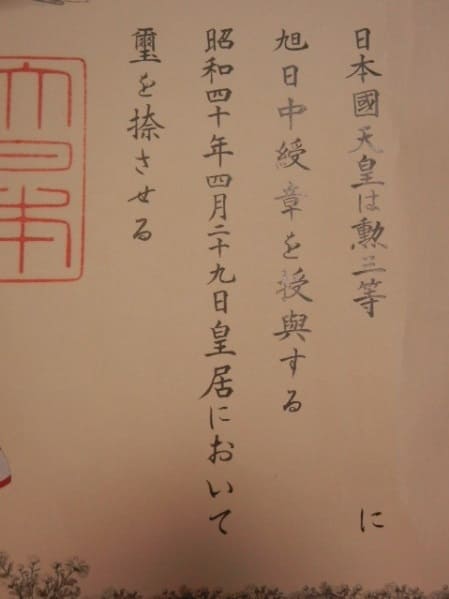 日本國天皇は勲三等　　　　　に
旭日中綬章を授與する
昭和四十年四月二十九日皇居において
璽を捺させる
大日本